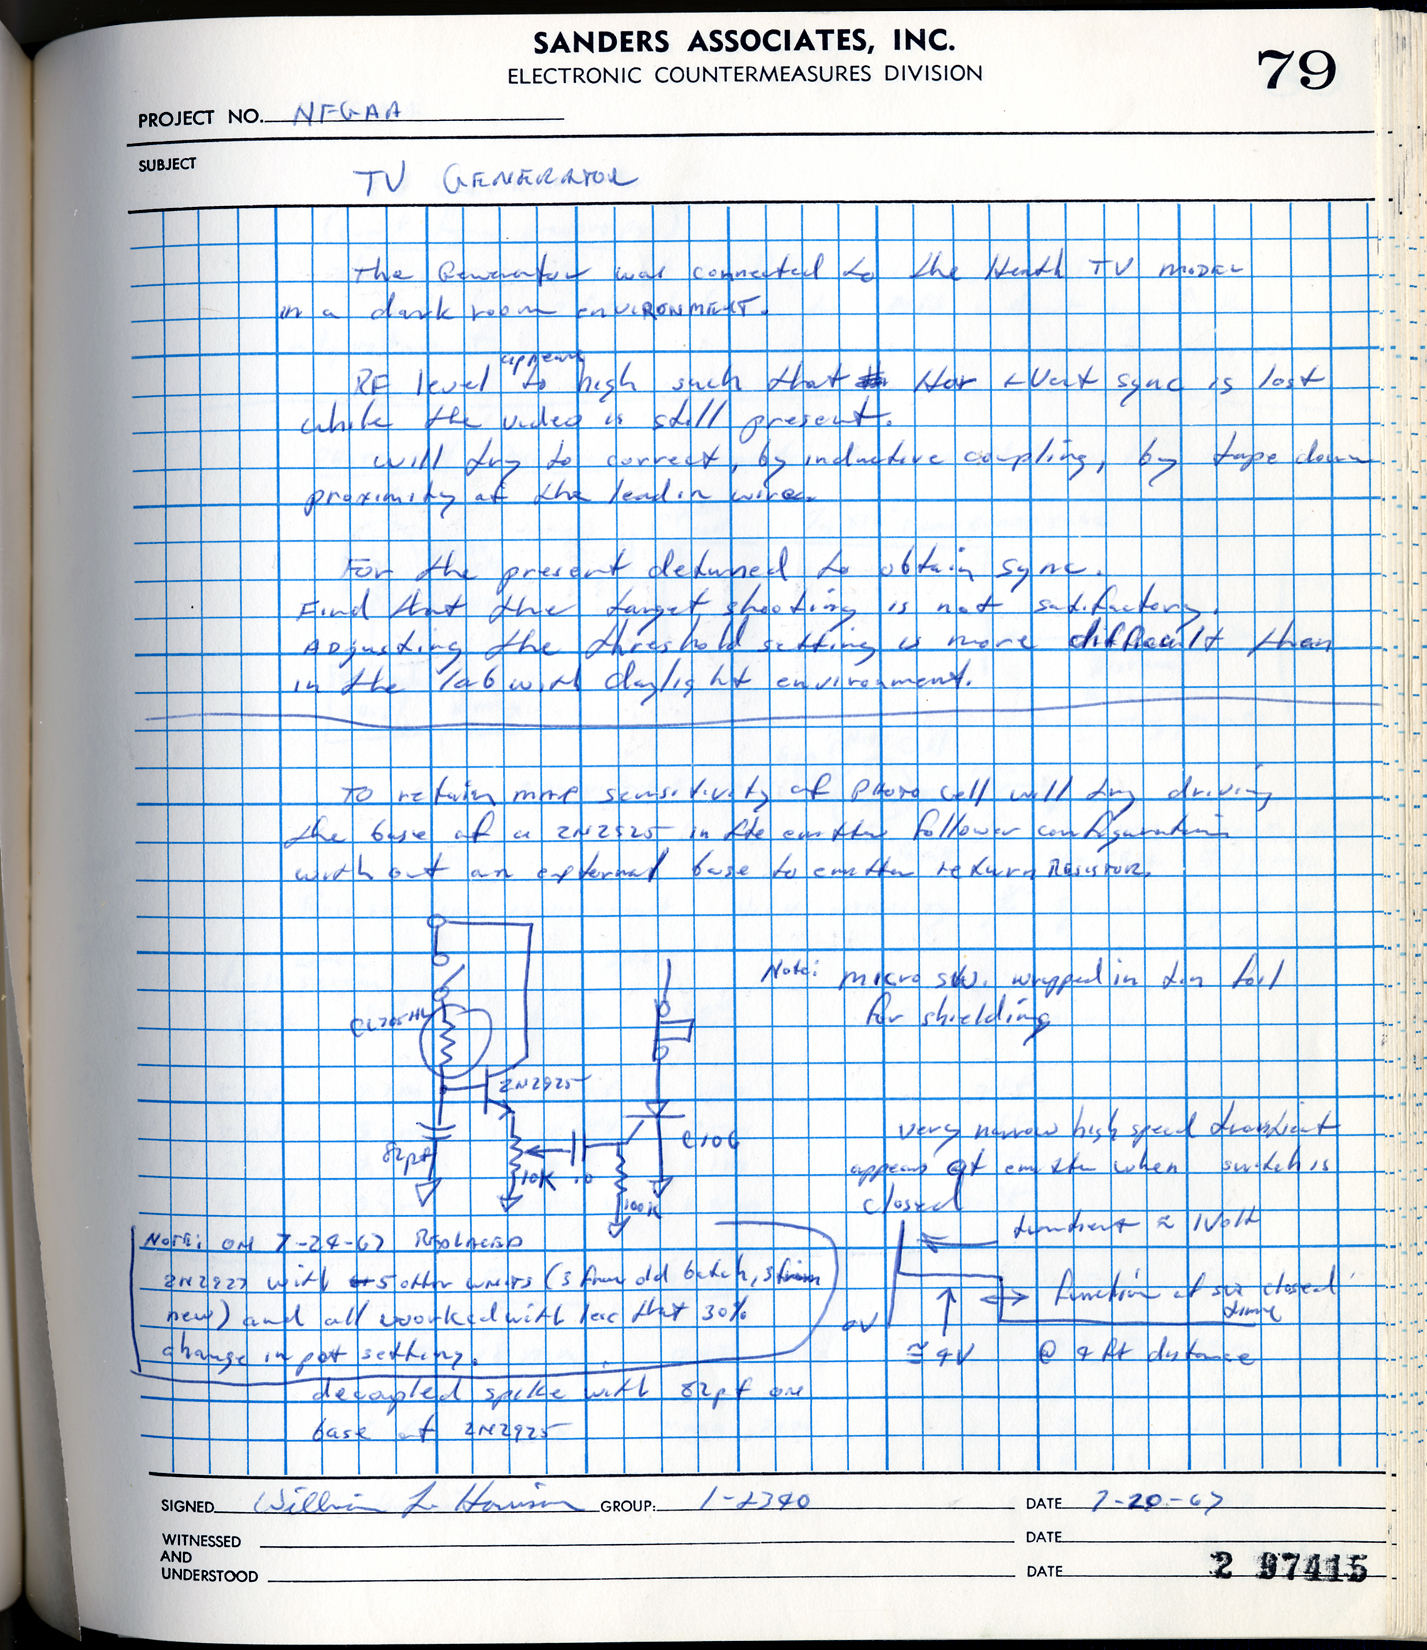 SANDERS ASSOCIATES, INC.
ELECTRONIC COUNTERMEASURES DIVISION
79
PROJECT NO. NFGAA
SUBJECT
TV GENERATOR
The Generator was connected to the Heath TV MODEL
in a dark room ENVIRONMENT.
appears
RF level to high such that Hor + Vert sync is lost
while the video is still present.
will try to correct, by inductive coupling, by tape down
proximity of the lead in wires.
For the present detuned to obtain sync.
Find that the target shooting is not satifactory.
ADjusting the threshold setting is more difficult than
in the lab with daylight environment.
TO retain more sensitivity of PHOTO cell will try driving
the base of a 2N2925 in the emitter follower configuration
with out an external base to emitter return RESISTOR.
Note: micro sw. wrapped in tin foil
for shielding
CL705HL
2N2925
82pf
10K
100K
C106
very narrow high speed transient
appears at emitter when switch is
closed
transient ≈ 1Volt
function of sw closed
time
0V
≅ 4V @ 4 ft distance
NOTE: ON 7-24-67 REPLACED
2N2927 with 5 other units (3 from old batch, from
new) and all worked with less that 30%
change in pot setting.
decoupled spike with 82pf on
base of 2N2925
SIGNED William L Harrison GROUP: 1-2340 DATE 7-20-67
WITNESSED DATE
AND
UNDERSTOOD DATE
2 97415